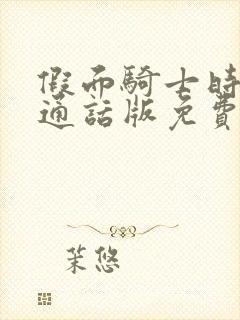 假面騎士時
通話版免費
茉悠